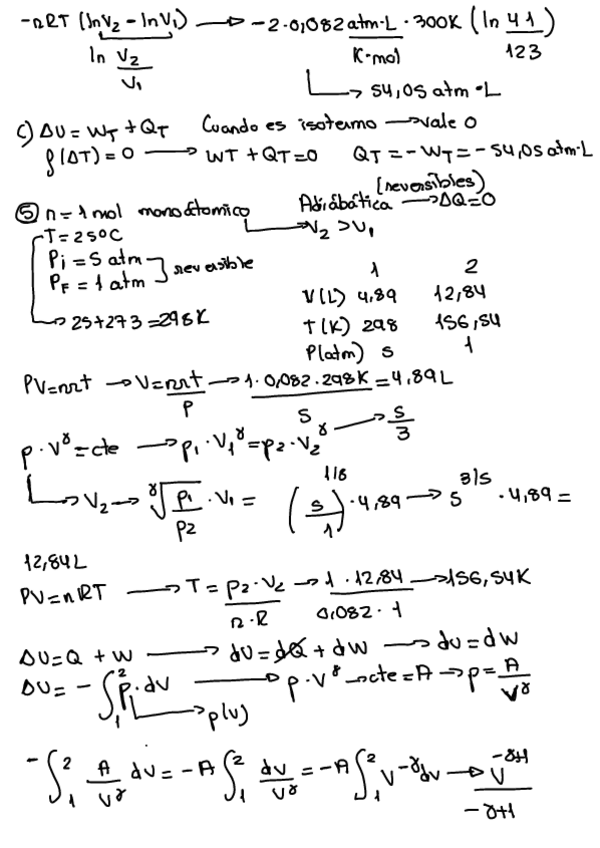 -nRT (lnV₂ - lnV₁) → -2·0,082 atm·L/K·mol · 300K (ln 41/123)
ln V₂/V₁
→ 54,05 atm·L
c) ΔU = W_T + Q_T Cuando es isotermo → vale 0
f(ΔT) = 0 → WT + QT = 0 Q_T = -W_T = -54,05 atm·L
(reversibles)
⑤ n = 1 mol monoátomico Adiábática → ΔQ = 0
T = 25ºC → V₂ > V₁
Pi = 5 atm
P_F = 1 atm ] reversible
1 2
V(L) 4,89 12,84
→ 25+273 = 298K
T(K) 298 156,54
P(atm) 5 1
PV = nrt → V = nrt/P → 1·0,082·298K/5 = 4,89L
p·V^γ = cte → p₁·V₁^γ = p₂·V₂^γ → 5/3
→ V₂ → ^γ√(p₁/p₂) · V₁ = (5/1)^1/γ · 4,89 → 5^3/5 · 4,89 =
12,84L
PV = nRT → T = p₂·V₂/n·R → 1·12,84/0,082·1 → 156,54K
ΔU = Q + W → dU = dQ + dW → dU = dW
ΔU = -∫₁² p·dv → p·V^γ → cte = A → p = A/V^γ
→ p(v)
-∫₁² A/V^γ dv = -A ∫₁² dv/V^γ = -A ∫₁² V^-γ dv → V^-γ+1/-γ+1